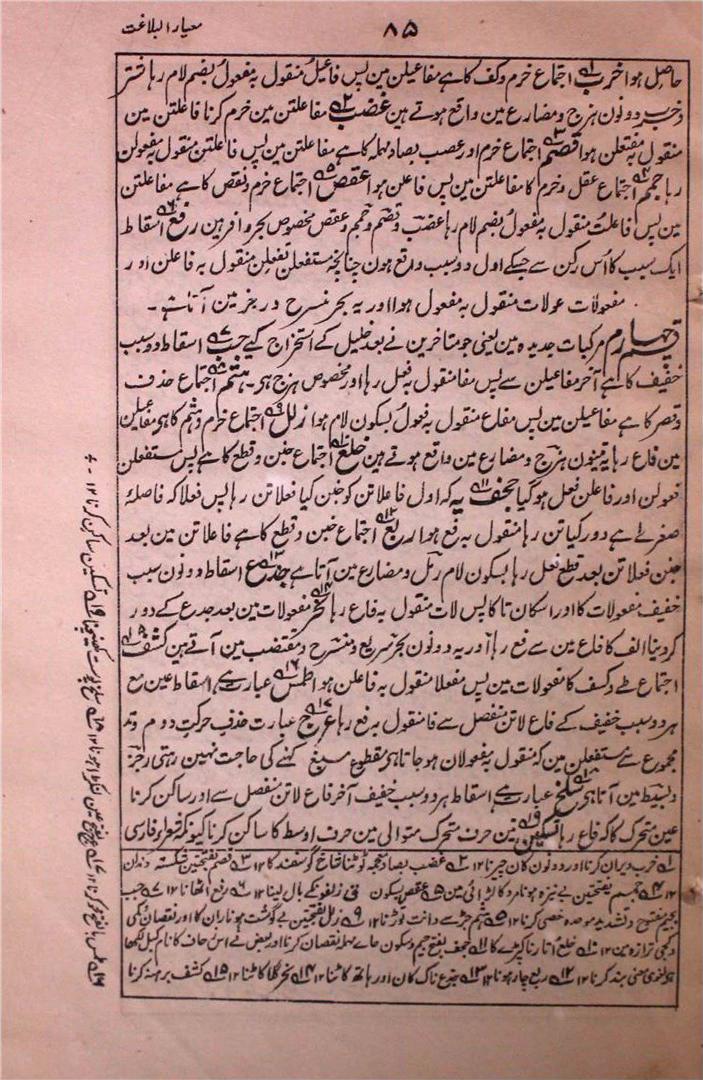 معیار البلاغت
۸۵
حاصل ہوا خرب اجتماع خرم وکف کا ہے مفاعیلن مین پس فاعیلُ منقول بہ مفعولُ بضم لام رہا شتر
وخرب دونون ہزج ومضارع مین واقع ہوتے ہین عضب مفاعلتن مین خرم کرنا فاعلتن مین
منقول بہ مفتعلن ہوا قصم اجتماع خرم اور عصب بصاد مہملہ کا ہے مفاعلتن مین پس فاعلتن منقول بہ مفعولن
رہا جمم اجتماع عقل وخرم کا مفاعلتن مین پس فاعلن ہوا عقص اجتماع خرم ونقص کا ہے مفاعلتن
مین پس فاعلتُ منقول بہ مفعولُ بضم لام رہا عضب وقصم وجمم وعقص مخصوص بحر وافر ہین رفع اسقاط
ایک سبب کا اُس رکن سے جسکے اول دو سبب واقع ہون چنانچہ مستفعلن تفعلن منقول بہ فاعلن اور
مفعولات عولات منقول بہ مفعول ہوا اور یہ بحر منسرح در رجز مین آتا ہے۔
قسم چہارم مرکبات جدیدہ مین یعنی جو متاخرین نے بعد خلیل کے استخراج کیے جب اسقاط دو سبب
خفیف کا ہے آخر مفاعیلن سے پس مفا منقول بہ فعل رہا اور مخصوص ہزج ہے۔ ہتم اجتماع حذف
وقصر کا ہے مفاعیلن مین پس مفاع منقول بہ فعولُ بسکون لام ہوا زلل اجتماع خرم وہتم کا ہی مفاعیلن
مین فاع رہا یہ تینون ہزج و مضارع مین واقع ہوتے ہین خلع اجتماع خبن و قطع کا ہے پس مستفعلن
فعولن اور فاعلن فعل ہو گیا جحف یہ کہ اول فاعلاتن کو خبن کیا فعلاتن رہا پس فعلا کہ فاصلۂ
صغرے ہے دور کیا تن رہا منقول بہ فع ہوا ربع اجتماع خبن و قطع کا ہے فاعلاتن مین بعد
خبن فعلاتن بعد قطع فعل رہا بسکون لام رمل و مضارع مین آتا ہے جدع اسقاط دونون سبب
خفیف مفعولات کا اور اسکان تا کا پس لات منقول بہ فاع رہا نحر مفعولات مین بعد جدع کے دور
کردینا الف کا فاع مین سے فع رہا اور یہ دونون بحر سریع و منسرح و مقتضب مین آتے ہین کشف
اجتماع طے وکسف کا مفعولات مین پس مفعلا منقول بہ فاعلن ہوا طمس عبارت ہے اسقاط عین مع
ہر دو سبب خفیف کے فاع لاتن منفصل سے فا منقول بہ فع رہا عرج عبارت حذف حرکتِ دوم وتد
مجموع سے مستفعلن مین کہ منقول بہ مفعولان ہو جاتا ہی مقطوع مسبغ کہنے کی حاجت نہین رہتی رجز
وبسیط مین آتا ہی سلخ عبارت ہے اسقاط ہر دو سبب خفیف آخر فاع لاتن منفصل سے اور ساکن کرنا
عین متحرک کا کہ فاع رہا تسکین تین حرف متحرک متوالی مین حرف اوسط کا ساکن کرنا کیونکہ شعراے فارسی
۱ خرب ویران کرنا اور دونون کان چیرنا ۱۲ ۲ عضب بصاد معجمہ ٹوٹنا شاخ گوسفند کا ۱۲ ۳ قصم بفتحتین شکستہ دندان
۱۲ ۴ جمم بفتحتین بے نیزہ ہونا مرد کا لڑائی مین ۵ عقص بسکون زلفونکے بال لپٹنا ۱۲ ۶ رفع اٹھانا ۱۲ ۷ جب
بجیم مفتوح وتشدید موحدہ خصی کرنا ۱۲ ۸ ہتم جڑسے دانت توڑنا ۱۲ ۹ زلل بفتحتین بے گوشت ہونا ران کا اور نقصان
وکمی ترازو مین ۱۲ ۱۰ خلع اتارنا کپڑے کا ۱۱ جحف بفتح جیم وسکون حاے مہملہ نقصان کرنا اور بعض نے اس
۱۲ ربع چار ہونا ۱۲ ۱۳ جدع ناک کان اور ہاتھ کاٹنا ۱۲ ۱۴ نحر گلا کاٹنا ۱۲ ۱۵ کشف برہنہ کرنا
۱۶ طمس بالفتح محو کرنا ۱۲ ۱۷ عرج بفتح عین لنگڑا ہونا ۱۲ ۱۸ سلخ پوست کھینچنا ۱۲ ۱۹ تسکین ساکن کرنا ۱۲